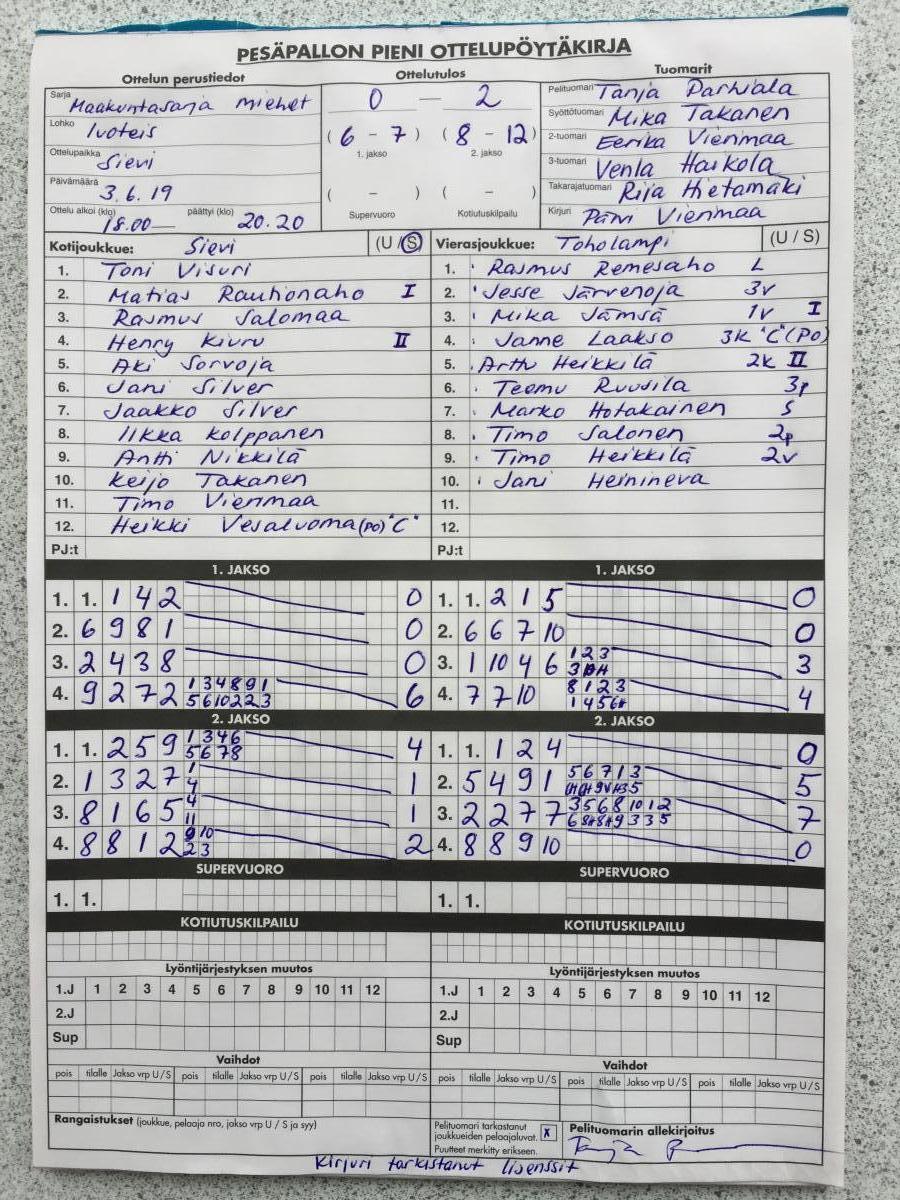 PESÄPALLON PIENI OTTELUPÖYTÄKIRJA
Ottelun perustiedot
Sarja Maakuntasarja miehet
Lohko Ivoteis
Ottelupaikka Sievi
Päivämäärä 3.6.19
Ottelu alkoi (klo) 18.00 — päättyi (klo) 20.20
Ottelutulos
0 — 2
(6 - 7) (8 - 12)
1. jakso 2. jakso
( - ) ( - )
Supervuoro Kotiutuskilpailu
Tuomarit
Pelituomari Tanja Parhiala
Syöttötuomari Mika Takanen
2-tuomari Eerika Vienmaa
3-tuomari Venla Haikola
Takarajatuomari Rija Hietamäki
Kirjuri Päivi Vienmaa
Kotijoukkue: Sievi (U / S)
1. Toni Visuri
2. Matias Rautionaho I
3. Rasmus Salomaa
4. Henry Kiuru II
5. Aki Sorvoja
6. Jani Silver
7. Jaakko Silver
8. Ilkka Kolppanen
9. Antti Nikkilä
10. Keijo Takanen
11. Timo Vienmaa
12. Heikki Vesaluoma (PO) "C"
PJ:t
Vierasjoukkue: Toholampi (U / S)
1. Rasmus Remesaho L
2. Jesse Järvenoja 3v
3. Mika Jämsä 1v I
4. Janne Laakso 3k "C" (PO)
5. Arttu Heikkilä 2k II
6. Teemu Ruusila 3p
7. Marko Hotakainen S
8. Timo Salonen 2p
9. Timo Heikkilä 2v
10. Jani Heinineva
11.
12.
PJ:t
1. JAKSO
1. 1. 1 4 2 0
2. 6 9 8 1 0
3. 2 4 3 8 0
4. 9 2 7 2 1 3 4 8 9 1 6
5 6 10 2 2 3
1. JAKSO
1. 1. 2 1 5 0
2. 6 6 7 10 0
3. 1 10 4 6 1 2 3 3
4. 7 7 10 8 1 2 3 4
2. JAKSO
1. 1. 2 5 9 1 3 4 6 4
5 6 7 8
2. 1 3 2 7 1 1
4
3. 8 1 6 5 4 1
11
4. 8 8 1 2 9 10 2
2 3
2. JAKSO
1. 1. 1 2 4 0
2. 5 4 9 1 5 6 7 1 3 5
3. 2 2 7 7 3 5 6 8 10 1 2 7
4. 8 8 9 10 0
SUPERVUORO
1. 1.
SUPERVUORO
1. 1.
KOTIUTUSKILPAILU
KOTIUTUSKILPAILU
Lyöntijärjestyksen muutos
1.J 1 2 3 4 5 6 7 8 9 10 11 12
2.J
Sup
Lyöntijärjestyksen muutos
1.J 1 2 3 4 5 6 7 8 9 10 11 12
2.J
Sup
Vaihdot
pois tilalle Jakso vrp U / S pois tilalle Jakso vrp U / S pois tilalle Jakso vrp U / S
Vaihdot
pois tilalle Jakso vrp U / S pois tilalle Jakso vrp U / S pois tilalle Jakso vrp U / S
Rangaistukset (joukkue, pelaaja nro, jakso vrp U / S ja syy)
Pelituomari tarkastanut
joukkueiden pelaajaluvat. X
Puutteet merkitty erikseen.
Pelituomarin allekirjoitus
Tanja P
Kirjuri tarkistanut lisenssit